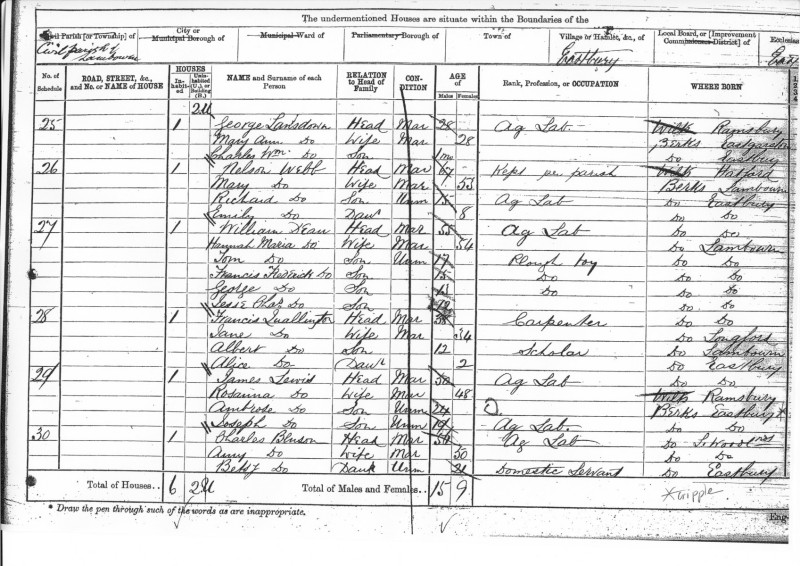 The undermentioned Houses are situate within the Boundaries of the
Civil Parish [or Township] of
City or Municipal Borough of
Municipal Ward of
Parliamentary Borough of
Town of
Village or Hamlet, &c., of
Local Board, or [Improvement Commissioners District] of
Ecclesias
Civil parish of Lambourn
Eastbury
East
No. of Schedule
ROAD, STREET, &c., and No. or NAME of HOUSE
HOUSES
Inhabited
Uninhabited (U.), or Building (B.)
NAME and Surname of each Person
RELATION to Head of Family
CONDITION
AGE of
Males
Females
Rank, Profession, or OCCUPATION
WHERE BORN
2U
25 1 George Lansdown Head Mar 28 Ag Lab Wilts Ramsbury
Mary Ann Do Wife Mar 28 Berks Eastgarston
Charles Wm. Do Son 1 mo Do Eastbury
26 1 Nelson Webb Head Mar 67 Kept per parish Wilts
Mary Do Wife Mar 53 Berks Lambourn
Richard Do Son Unm 15 Ag Lab Do Eastbury
Emily Do Daur 8 Do Do
27 1 William Head Mar 55 Ag Lab Do Do
Hannah Maria Do Wife Mar 54 Do Lambourn
Tom Do Son Unm 17 Plough boy Do Do
Francis Frederick Do Son 15 Do Do Do
George Do Son 13 Do Do Do
Jesse Chas Do Son Do Do
28 1 Francis Quallington Head Mar 38 Carpenter Do Do
Jane Do Wife Mar 34 Do Longford
Albert Do Son 12 Scholar Do Lambourn
Alice Do Daur 2 Do Eastbury
29 1 James Lewis Head Mar 50 Ag Lab Do Do
Rosanna Do Wife Mar 48 Wilts Ramsbury
Ambrose Do Son Unm 24 Berks Eastbury *
Joseph Do Son Unm 19 Ag Lab. Do Do
30 1 Charles Head Mar 54 Ag Lab Do
Amy Do Wife Mar 50 Do Do
Betsy Do Daur Unm 21 Domestic Servant Do Eastbury
Total of Houses.. 6 2U Total of Males and Females.. 15 9
* cripple
* Draw the pen through such of the words as are inappropriate.
Eng